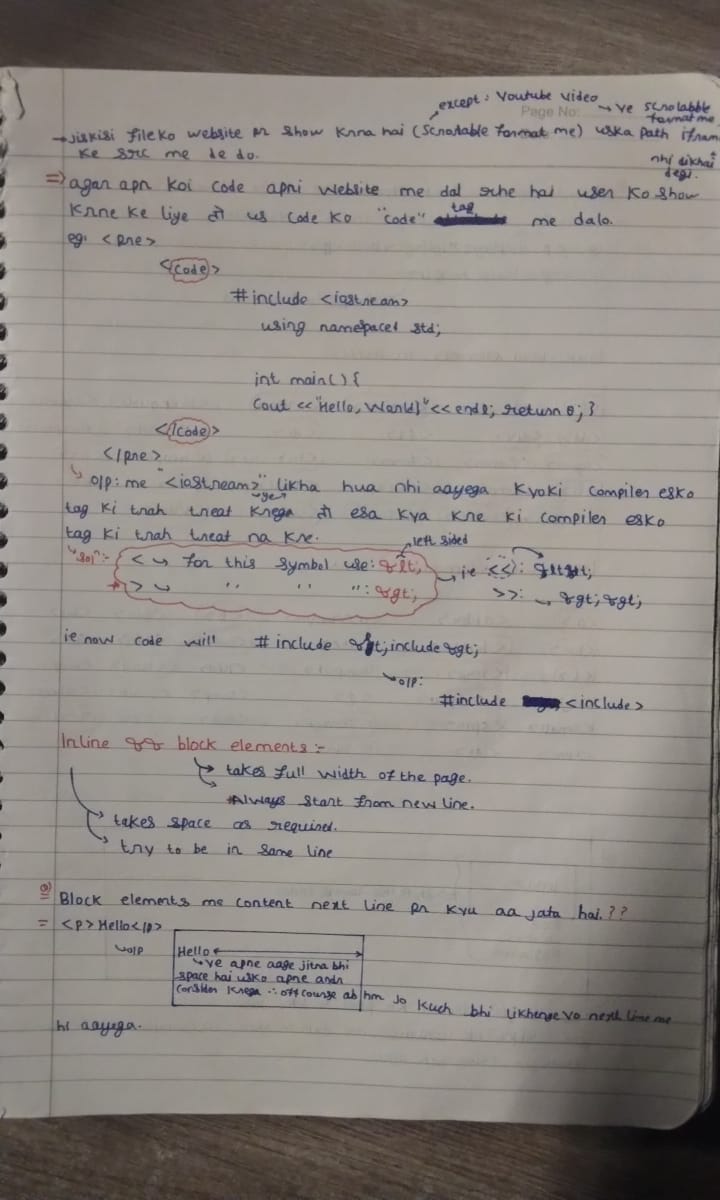 except: Youtube video → ve scrolabble
Page No: format me
→ Jiskisi file ko website pr show krna hai (Scrolable format me) uska path ifram
nhi dikhai
ke src me de do. degi.
⇒ agar apn koi code apni website me dal rhe hai user ko show
tag
krne ke liye तो us code ko "code" me dalo.
eg: <pre>
<code>
#include <iostream>
using namespace std;
int main() {
Cout <<"Hello, World!"<< endl; return 0; }
</code>
</pre>
↳ O/P: me "<iostream>" likha hua nhi aayega kyoki compiler esko
↳ye
tag ki trah treat krega तो esa kya kre ki compiler esko
tag ki trah treat na kre.
left sided
"Sol": < ↳ for this symbol use: &lt; → ie <<: &lt;&lt;
*> ↳ " " ": &gt; >>: → &gt;&gt;
ie now code will #include &lt;include&gt;
↳O/P:
#include <include>
Inline && block elements :-
→ takes full width of the page.
*Always start from new line.
→ takes space as required.
→ try to be in same line
Q) Block elements me content next line pr kyu aa jata hai.??
= <p>Hello</p>
↳o/p Hello ↔
↳ve apne aage jitna bhi
space hai usko apne andr
Consider krega ∴ off course ab hm jo kuch bhi likhenge vo next line me
hi aayega.